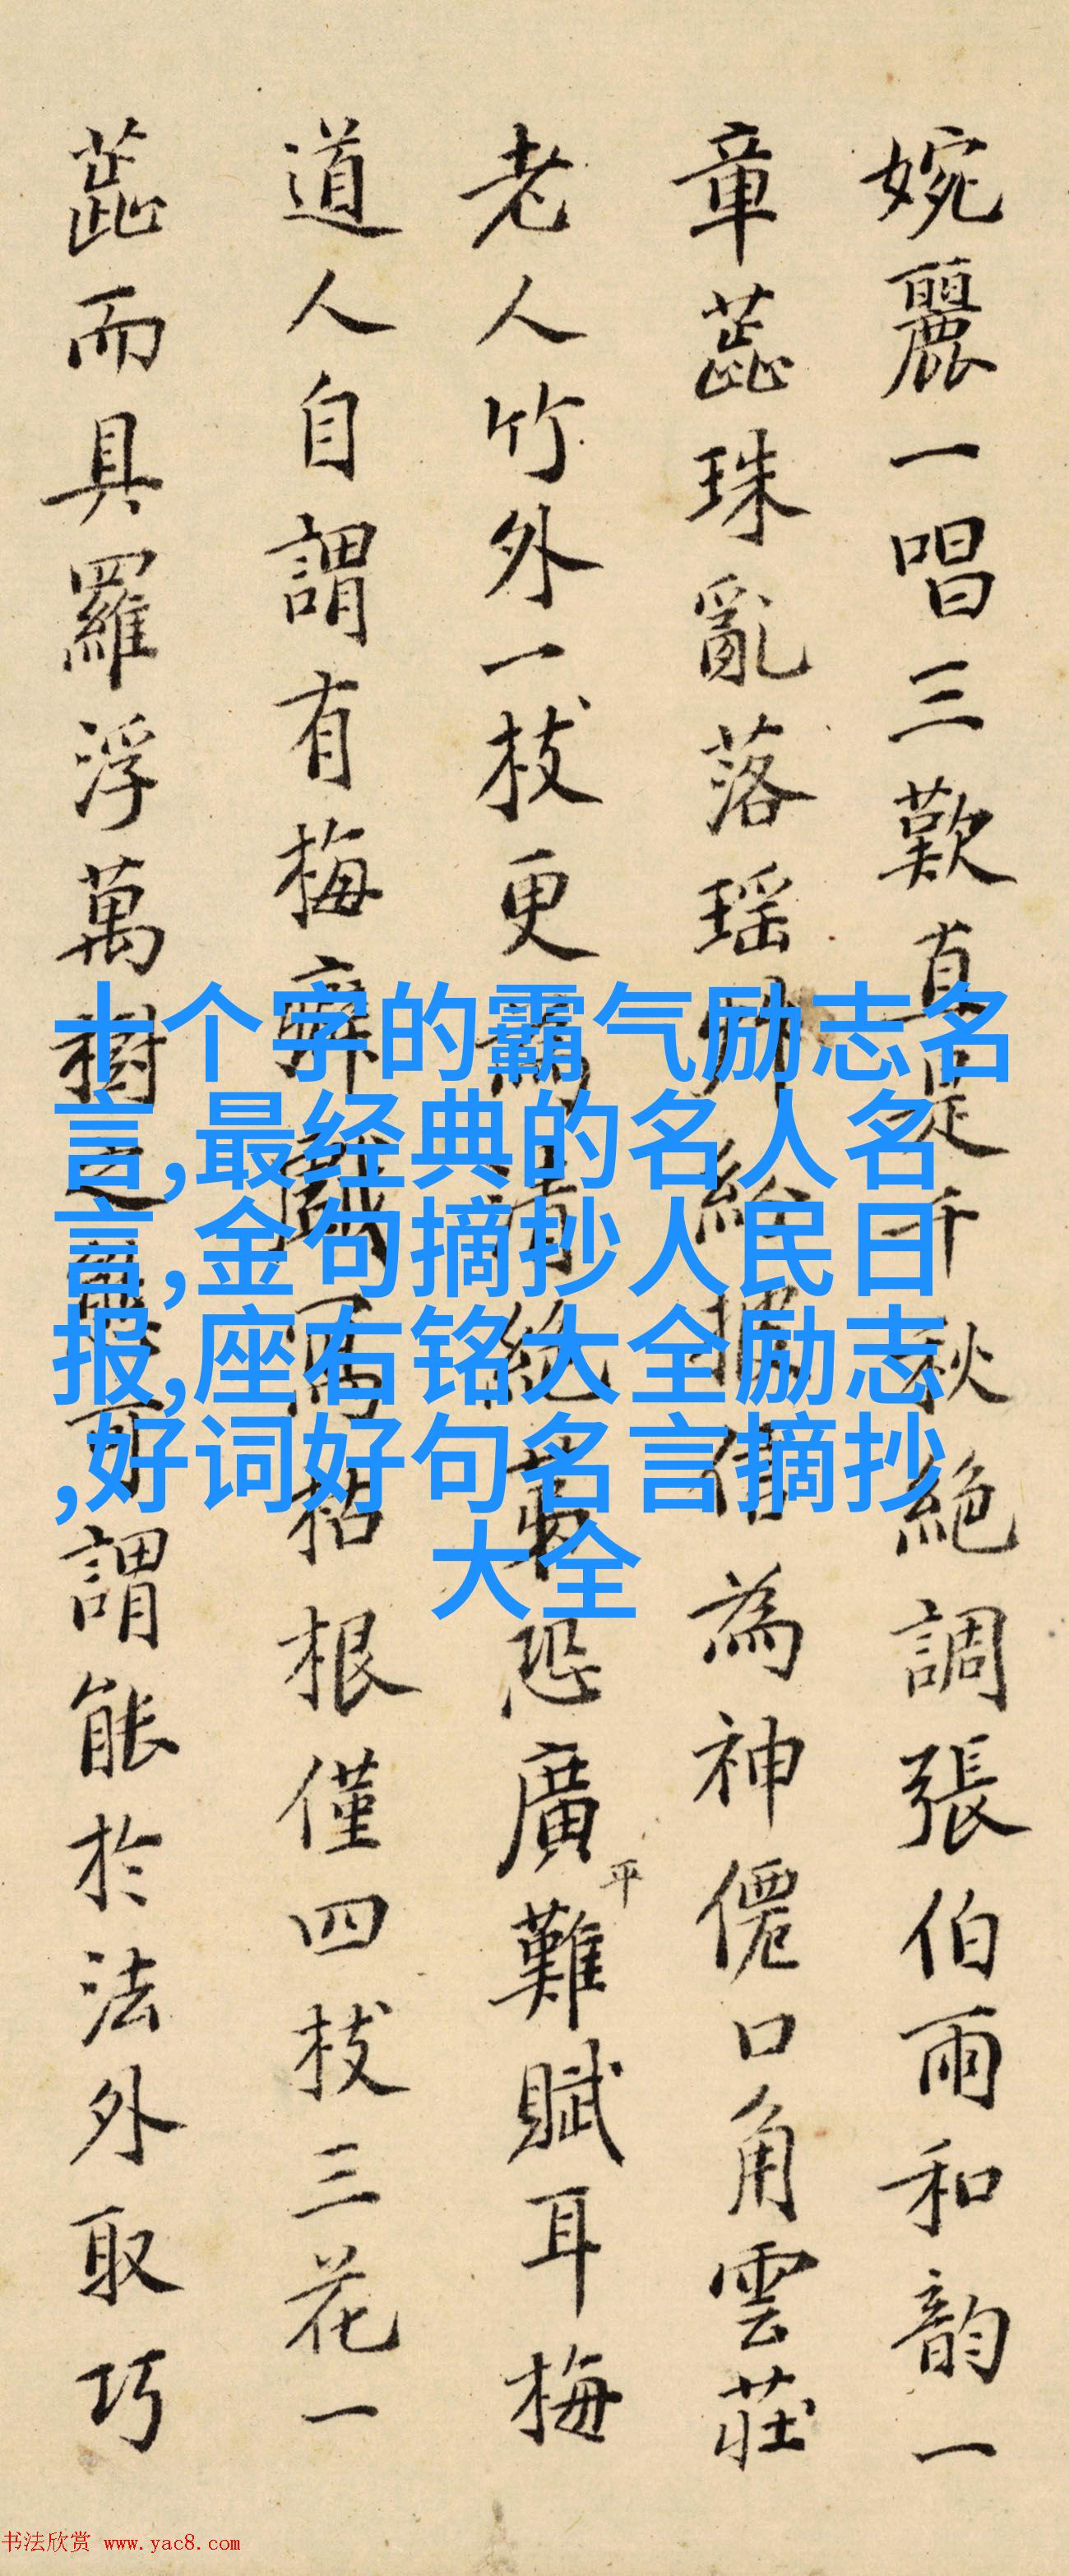 婉麗一唱三歎真是千秋絕調張伯雨和韵一
章蕊珠亂落瑶 為神僊口角雲莊
老人竹外一枝更 清絕 恐廣平難賦耳梅
道人自謂有梅癖戲寫枯根僅四枝三花一
蕊而具羅浮萬樹之 可謂能於法外取巧
十个字的霸气励志名
言,最经典的名人名
言,金句摘抄人民日
报,座右铭大全励志
,好词好句名言摘抄
大全
书法欣赏 www.yac8.com